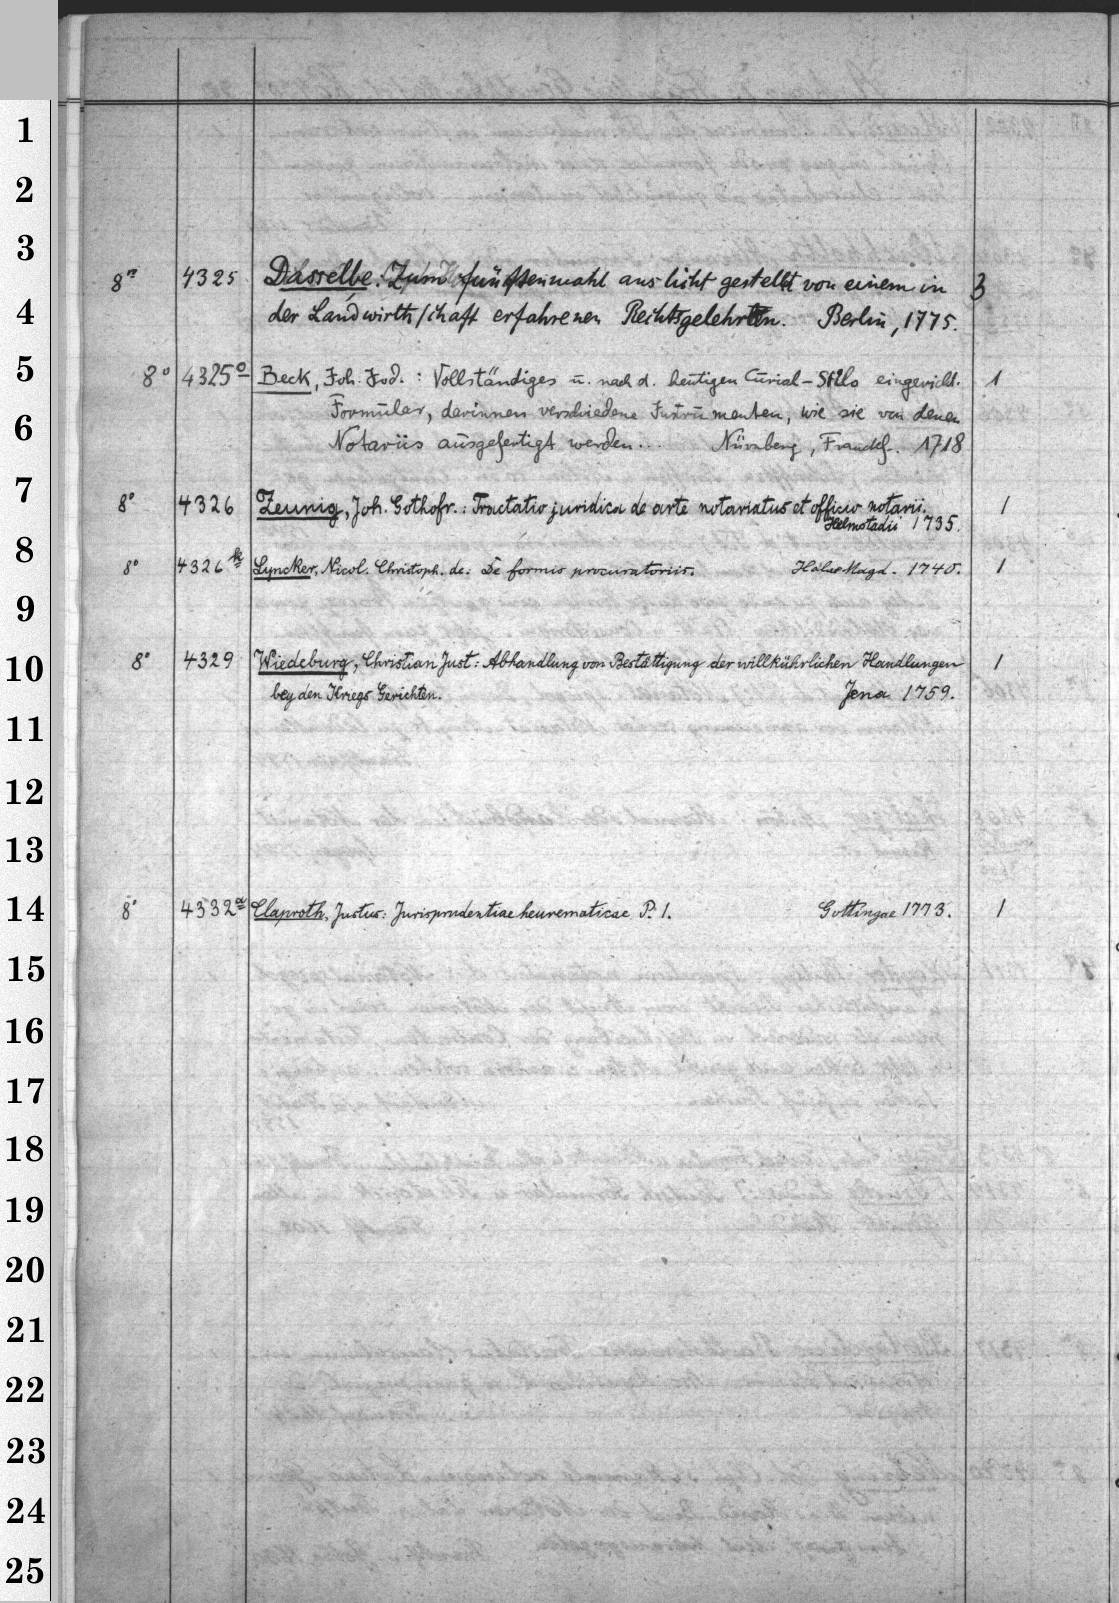 1
2
3
8° 4325 Dasselbe: Zum fünftenmahl ans licht gestellt von einem in 3
4
der Landwirthschaft erfahrenen Rechtsgelehrten. Berlin, 1775.
5
8° 4325a Beck, Joh. Jod.: Vollständiges u. nach d. heutigen Curial-Stilo eingericht. 1
Formular, darinnen verschiedene Instrumenten, wie sie von denen
6
Notariis ausgefertigt werden... Nürnberg, Franckf. 1718
7
8° 4326 Zeunig, Joh. Gothofr.: Tractatio juridica de arte notariatus et officio notarii. 1
Helmstadii 1735.
8
8° 4326 Lyncker, Nicol. Christoph. de: De formis procuratoriis. Halae Magd. 1740. 1
9
10
8° 4329 Wiedeburg, Christian Just: Abhandlung von Bestättigung der willkührlichen Handlungen 1
bey den Kriegs Gerichten. Jena 1759.
11
12
13
14
8° 4332a Claproth, Justus: Jurisprudentiae heurematicae P. 1. Gottingae 1773. 1
15
16
17
18
19
20
21
22
23
24
25